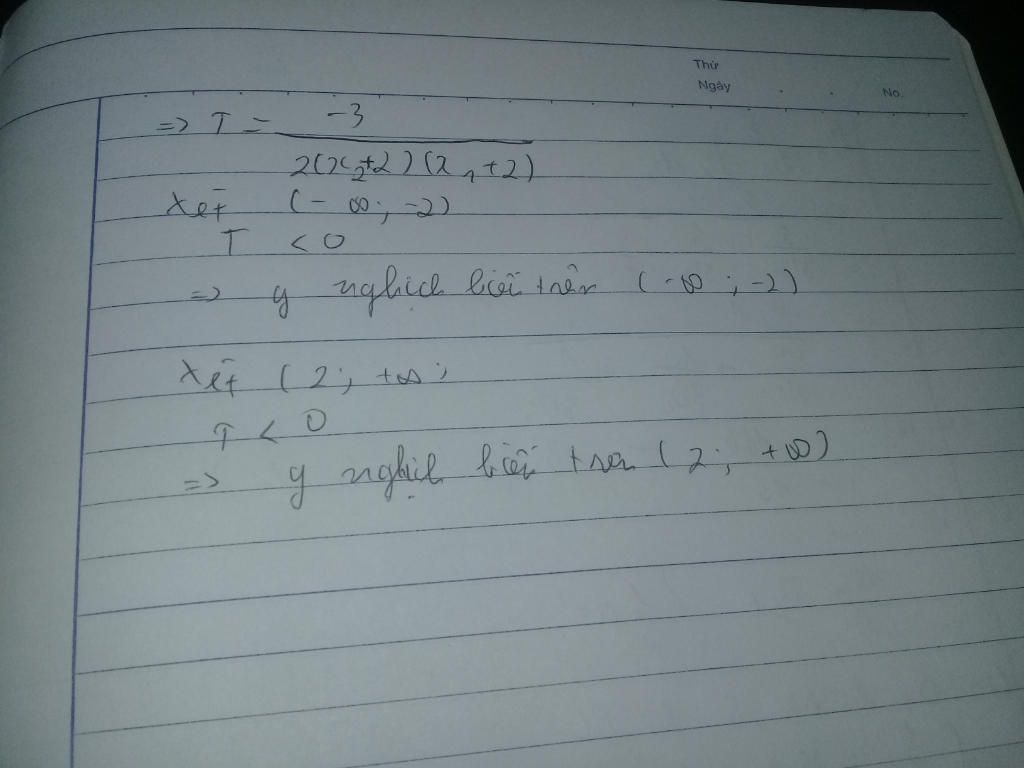 Thứ
Ngày . . No.
=> T = -3
2(x₂+2)(x₁+2)
Xét (-∞; -2)
T < 0
=> y nghịch biến trên (-∞; -2)
Xét (2; +∞;
T < 0
=> y nghịch biến trên (2; +∞)